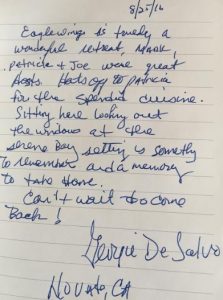 8/25/16
Eaglewing is truly a
wonderful retreat, Mark,
Patricia & Joe were great
hosts. Hats off to Patricia
for the splendid cuisine.
Sitting here looking out
the windows at the
serene Bay setting is somethg
to remember and a memory
to take home.
Can't wait to come
Back!
Georgie De Salvo
Novato, CA